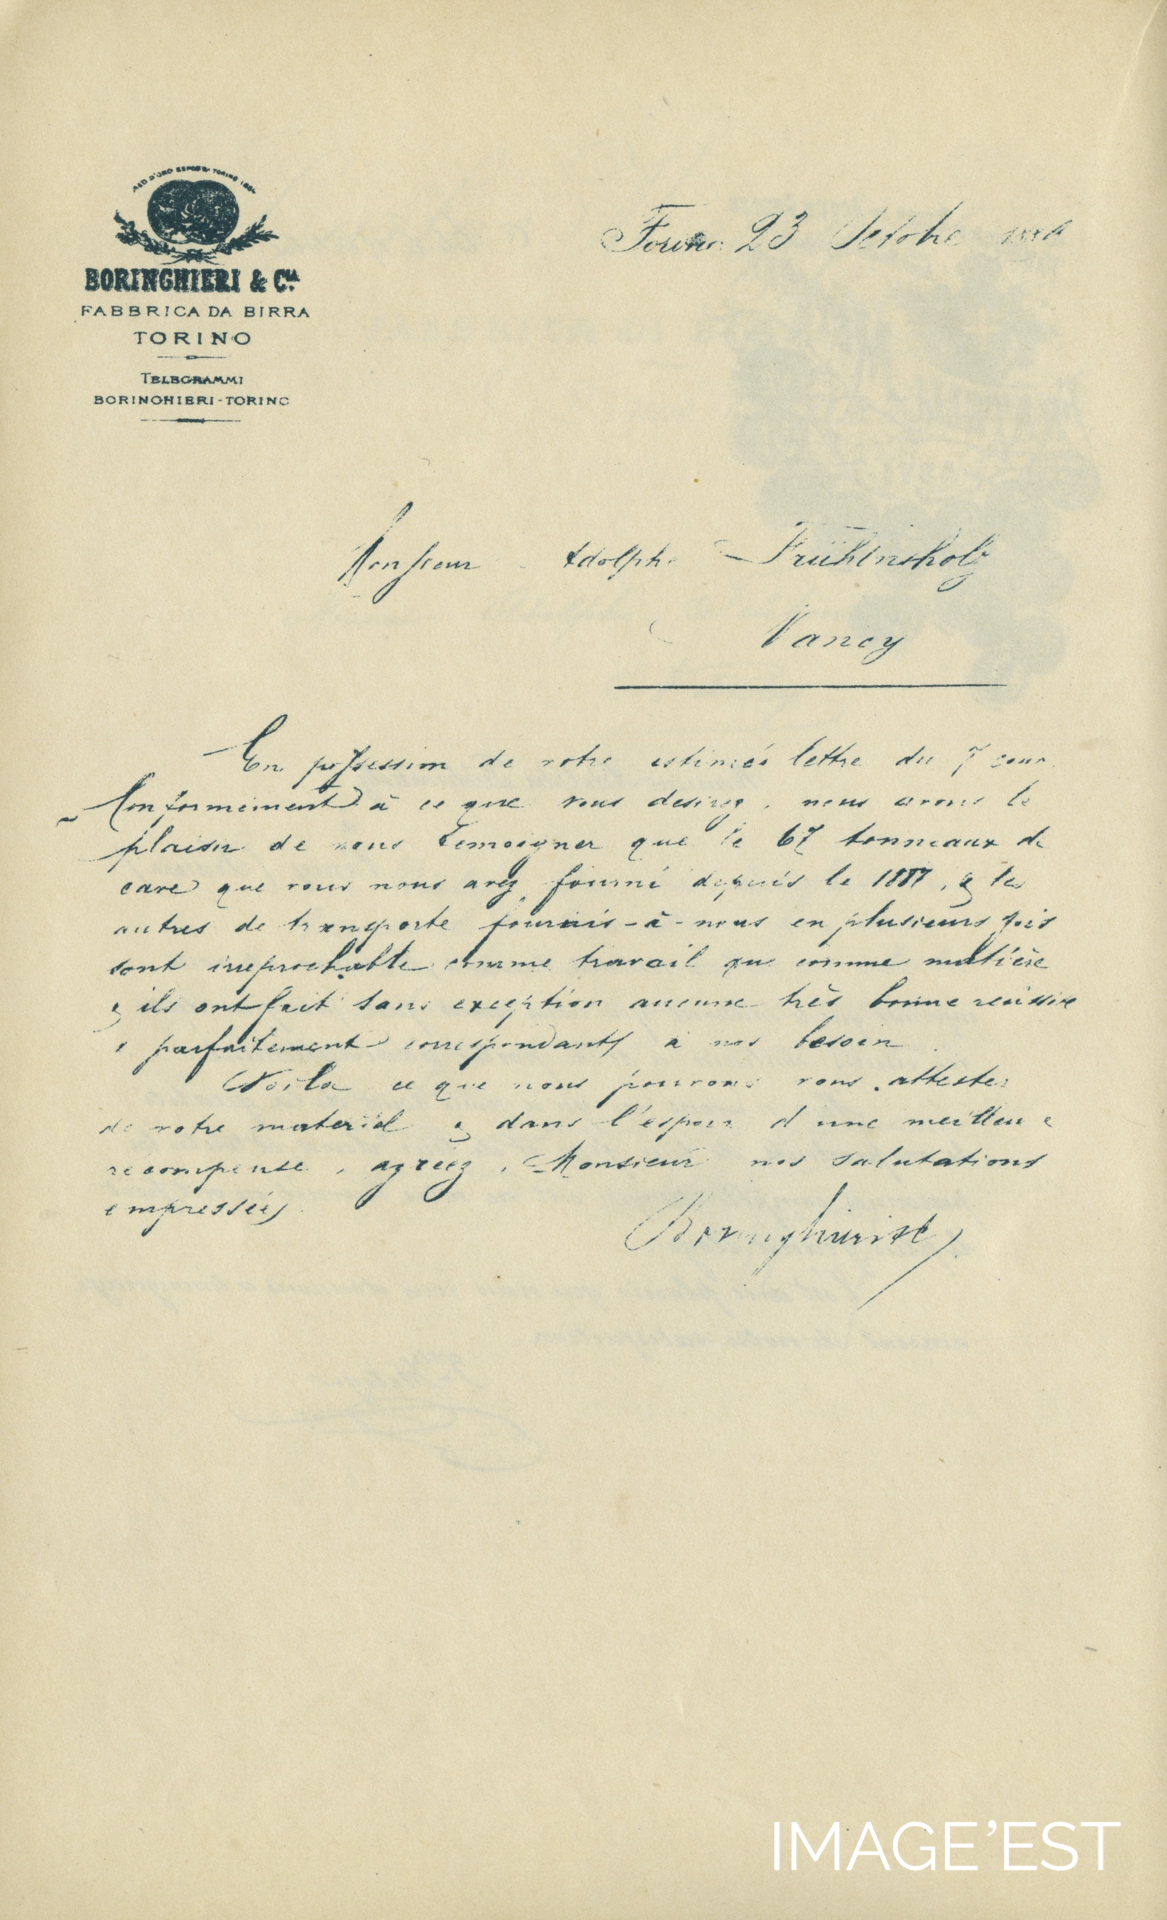 MED D'ORO ESPOS. TORINO 1884
BORINGHIERI & Cia
FABBRICA DA BIRRA
TORINO
TELEGRAMMI
BORINGHIERI-TORINO
Torino 23 Octobre
Monsieur Adolphe Frühinsholz
Nancy
En possession de votre estimée lettre du 7 cour.
Conformement à ce que vous desirez, nous avons le
plaisir de vous temoigner que le 67 tonneaux de
cave que vous nous avez fourni depuis le 1887, & les
autres de transporte fournis-à-nous en plusieurs fois
sont irreprochable comme travail que comme matière
& ils ont fait sans exception aucune très bonne reùssire
& parfaitement correspondants à nos besoin
Voila ce que nous pouvons vous attester
de votre materiel & dans l'espoir d'une meilleure
recompense, agréez, Monsieur nos salutations
empressées
Boringhieri & C
IMAGE'EST